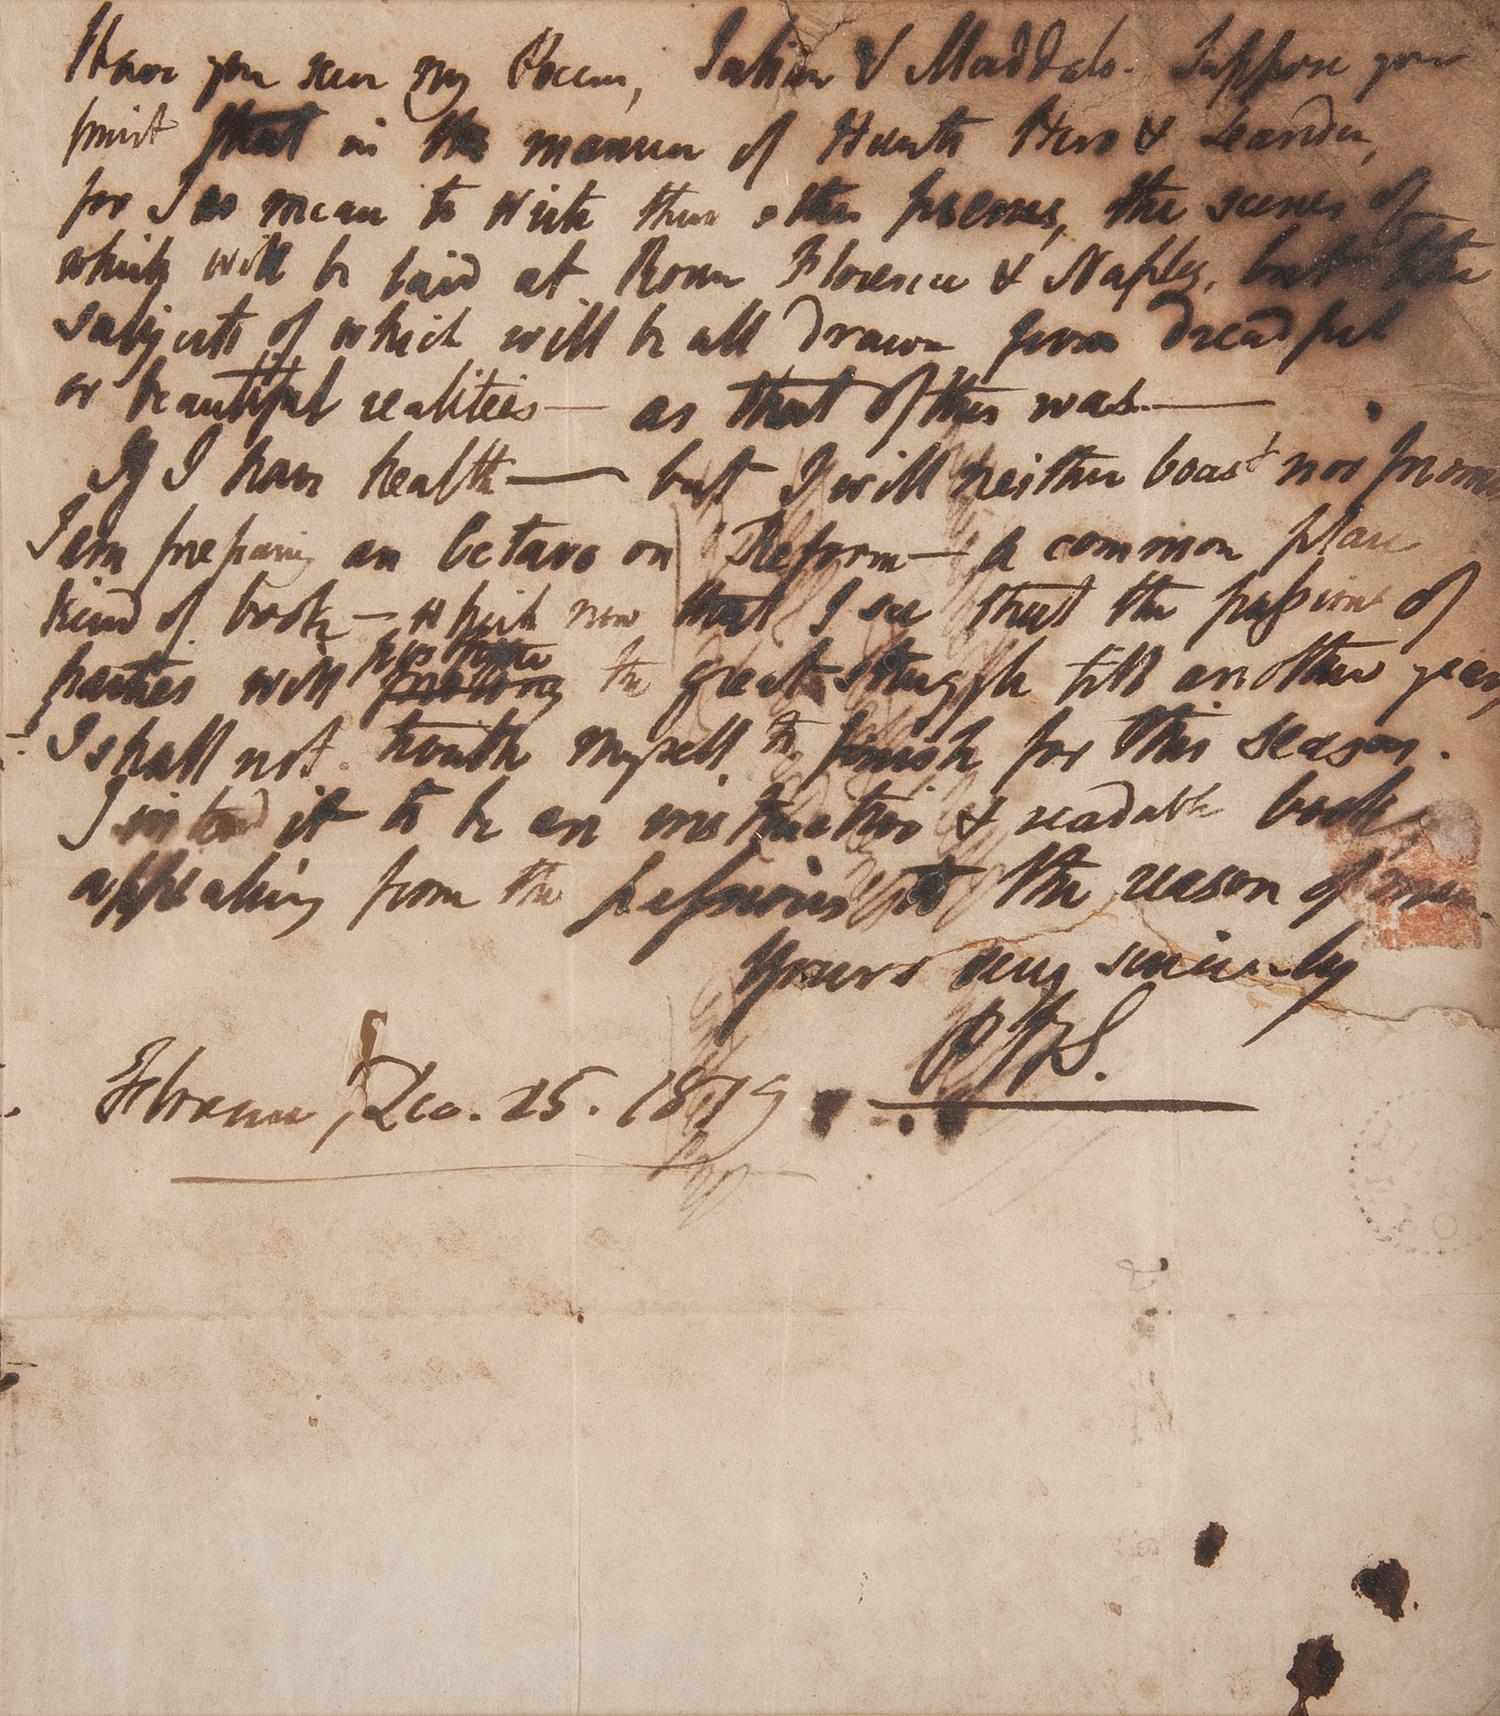 Have you seen my Poem, Julian & Maddalo. Suppose you
print that in the manner of Hunts Hero & Leander,
for I so mean to write three other poems, the scenes of
which will be laid at Rome Florence & Naples, but the
subjects of which will be all drawn from dreadful
or beautiful realities — as that of this was. —
If I have health — but I will neither boast nor promise
I am preparing an Octavo on Reform — a common place
kind of book — which now that I see that the passions of
parties will postpone the great struggle till another year,
I shall not trouble myself to finish for this season.
I intend it to be an instructive & readable book
appealing from the passions to the reason of men.
Yours very sincerely
PBS.
Florence, Dec. 25. 1819